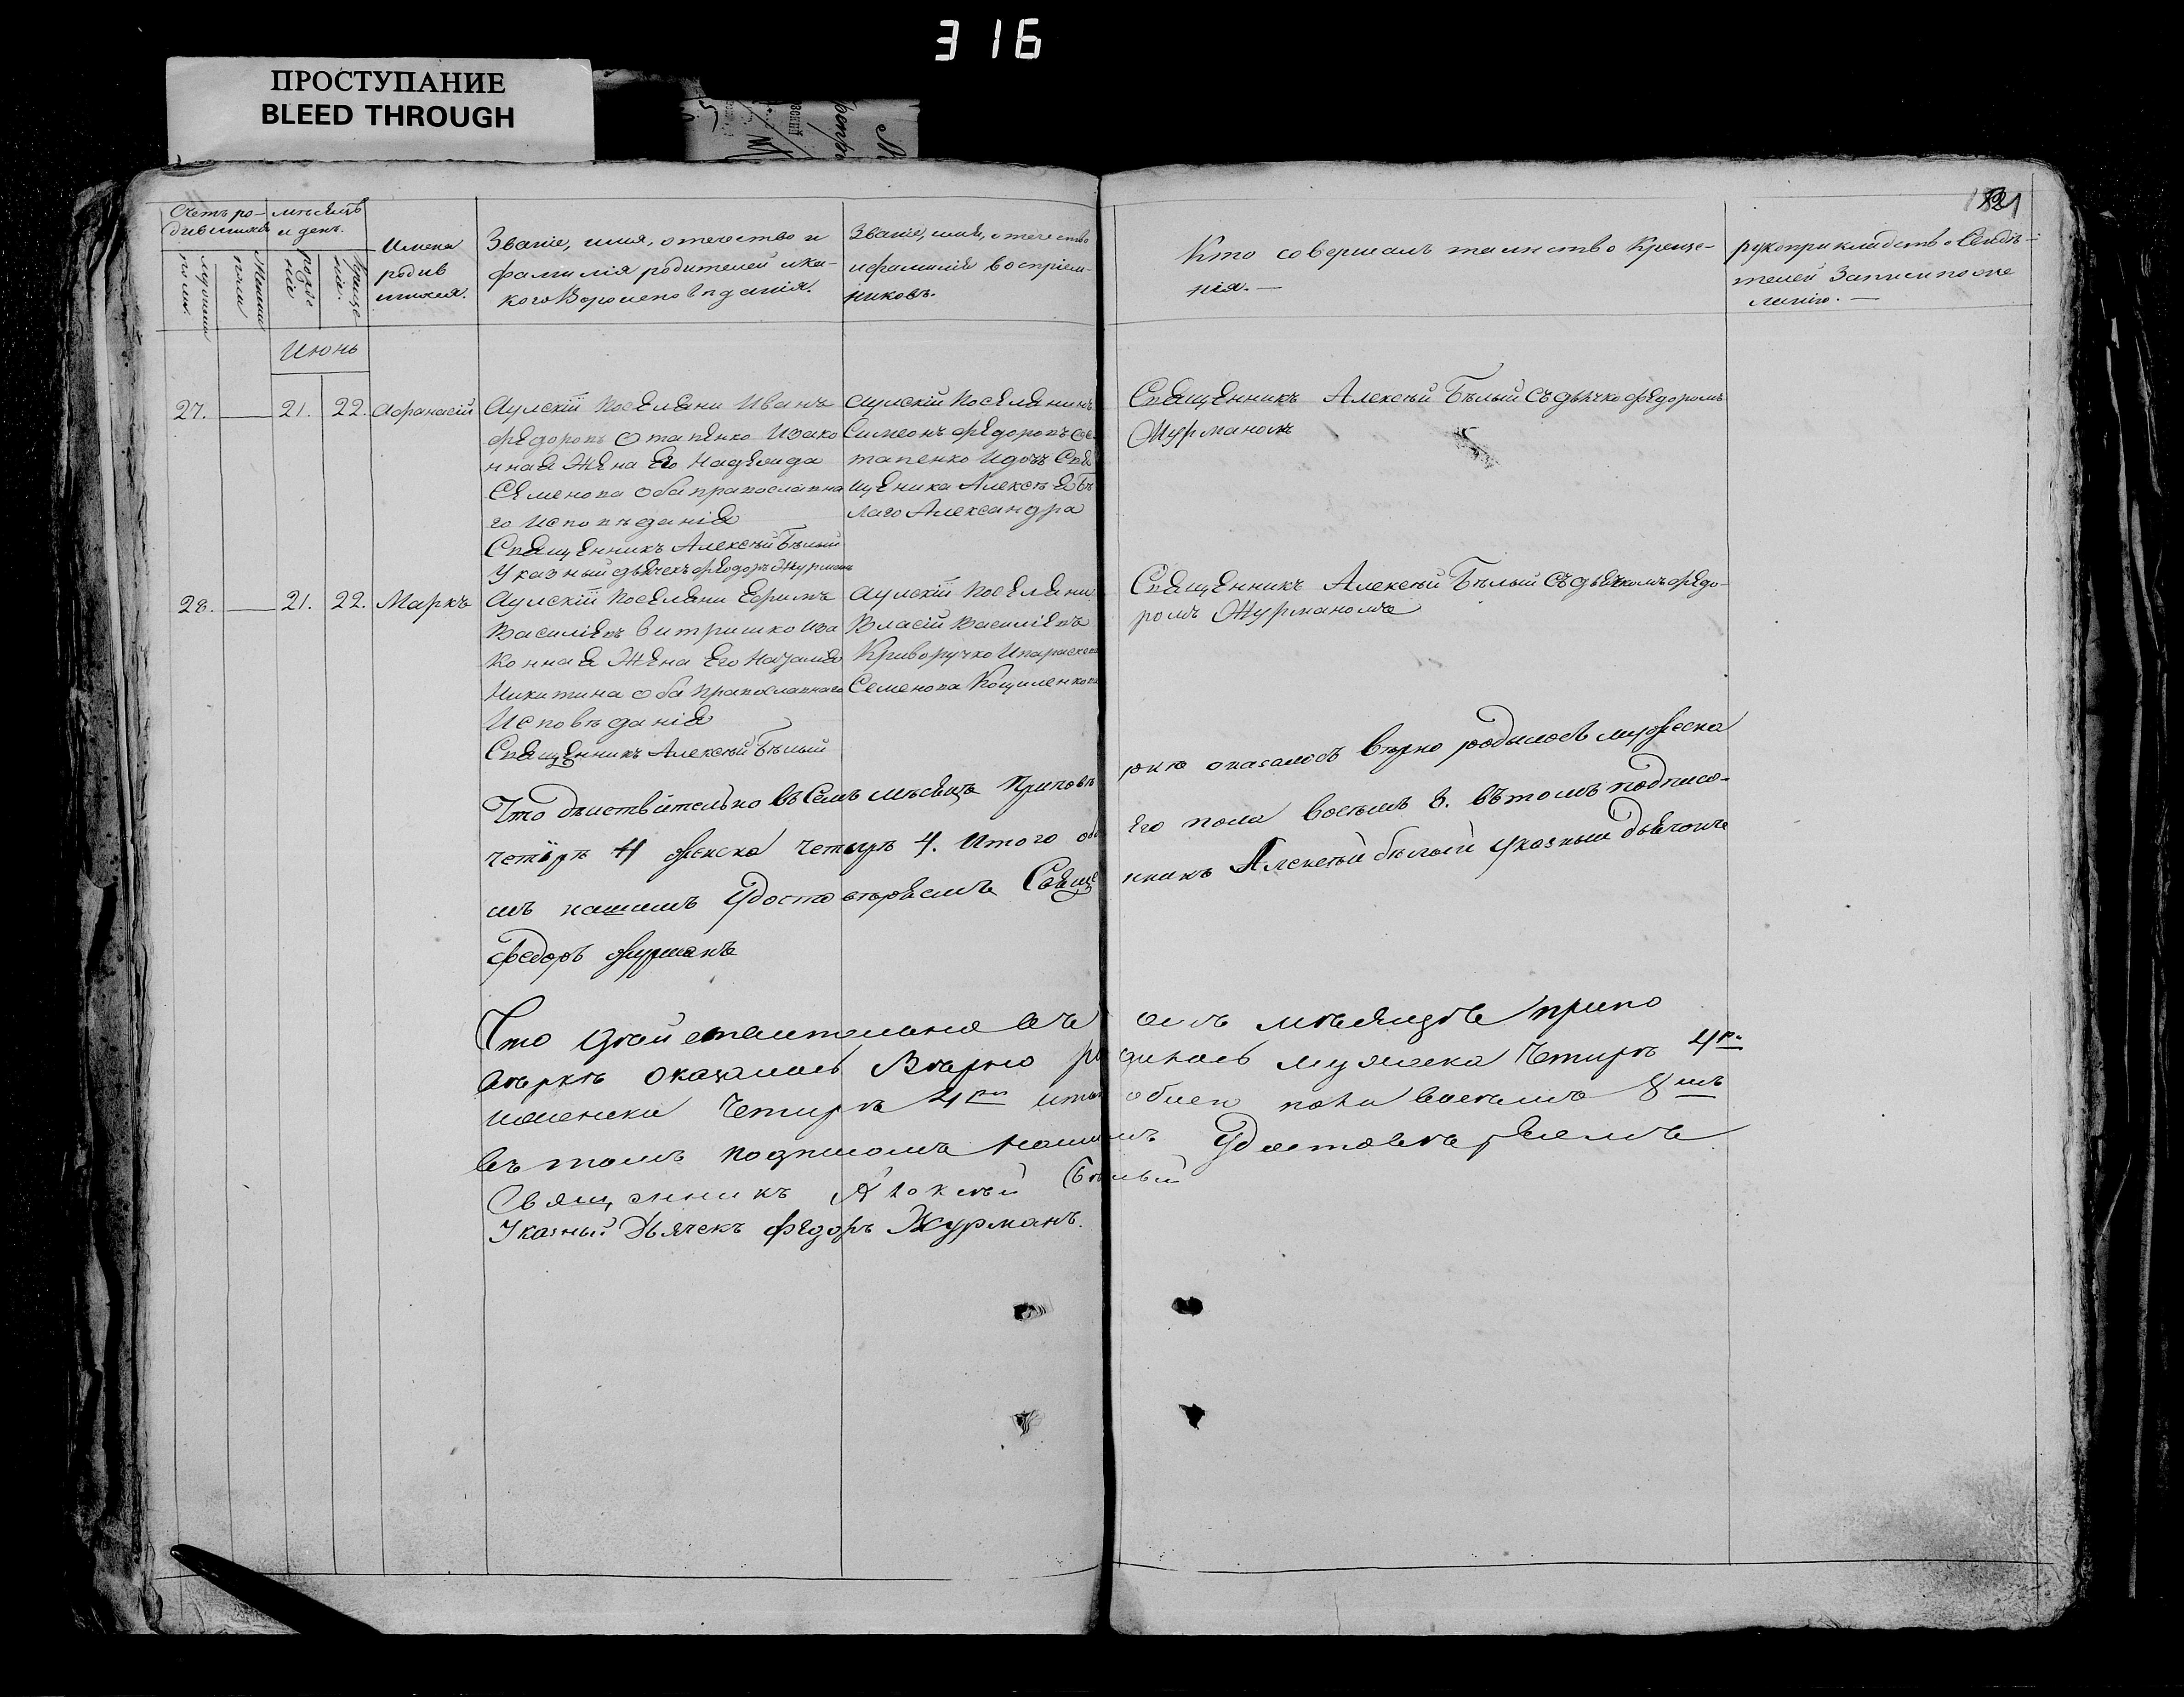 316
ПРОСТУПАНИЕ
BLEED THROUGH
Счетъ ро-
дившихся
мѣсяцъ
и день.
мужеска
пола.
Женска
пола
рожде
нія
креще
нія.
Имена
родив
шихся.
Званіе, имя, отечество и
фамилія родителей и ка-
кого Вѣроисповѣданія.
Званіе, имя, отечество
и фамилія воспріем-
никовъ.
Кто совершалъ таинство Креще-
нія. —
рукоприкладство Свидѣ-
телей Записи по же
ланію. —
Июнь
27. — 21. 22. Афанасій
Аулскій Поселяни Иванъ
Федоровъ Отапенко Изако
нная Жена Его Надежда
Семенова оба православна
го Исповѣданія
Священникъ Алексѣй Бѣлый
Указный дьячекъ Федоръ Журманъ
Аулскій Поселянинъ
Симеонъ Федоровъ
тапенко Идочъ Свя
щеника Алексѣя Бѣ
лаго Александра
Священникъ Алексѣй Бѣлый Съ дьячко Федоромъ
Журманомъ
28. — 21. 22. Маркъ
Аулскій Поселяни Ефимъ
Василіевъ Витришко Иза
конная Жена Его Наталія
Никитина оба Православнаго
Исповѣданія
Священникъ Алексѣй Бѣлый
Аулскій Поселяни
Власій Василіевъ
Криворучко Ипараскева
Семенова Кощиленкова
Священникъ Алексѣй Бѣлый Съ дьячкомъ Федо-
ромъ Журманомъ
Что дѣиствително въ Семъ мѣсяцѣ Приповѣ
ркѣ оказалось вѣрно родылось мужеска
четырѣ 4 женска четырѣ 4. Итого обо
его пола восъмъ 8. Вътомъ подписо-
мъ нашимъ Удостовѣряемъ Свяще
нникъ Алексѣй бѣлый указныи дьячокъ
Федоръ Журманъ
Что Дѣйствительно въ семъ мѣсяцѣ припо
вѣркѣ оказалось Вѣрно родилось мужеска Четирѣ 4ри
иженска Четирѣ 4ри итого обоего пола восъмъ 8мъ
Въ томъ подписомъ Нашимъ Удостовѣряемъ
Священникъ Алексѣй Бѣлый
Указный Дьячекъ Федоръ Журманъ.